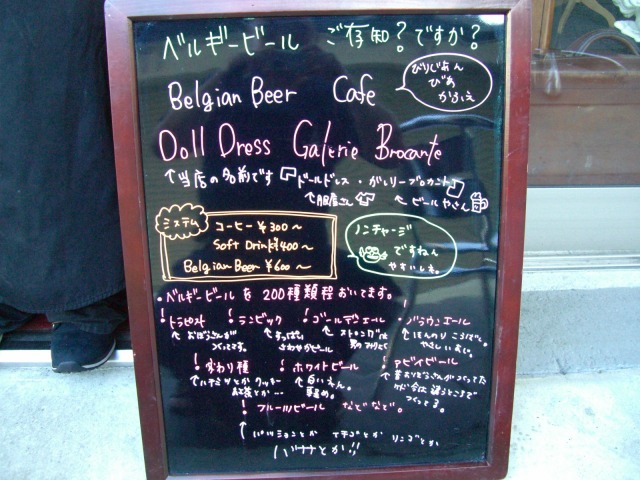 ベルギービール ご存知?ですか?
Belgian Beer Cafe
びりじあん
びあ
かふぇ
Doll Dress Galerie Brocante
↑当店の名前です「ドールドレス・ガレリーブロカント」
↑服屋さん ↖ビールやさん
システム
コーヒー ¥300~
Soft Drink ¥400~
Belgian Beer ¥600~
ノンチャージ
ですねん
やすいしネ。
・ベルギービールを200種類程おいてます。!
!トラピスト !ランビック !ゴールデンエール ・ブラウンエール
↑おぼうさんが つくってます。
↑すっぱい さわやかビール
↑ストロングな
↑ほんのり
やさしいあじ。
!変わり種 !ホワイトビール !アビイビール
↑ハチミツとか クッキー
↑白いえん。
つくってる。
! フルーツビール などなど。
↑パッションとか イチゴとか リンゴとか
バナナとか!!